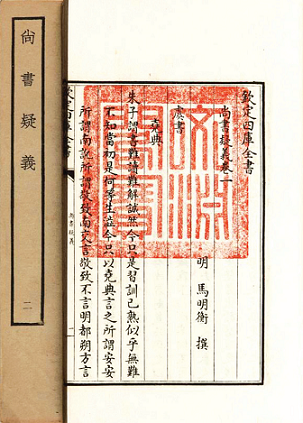 欽定四庫全書
尚書疑義卷一
明 馬明衡 撰
虞書
堯典
朱子謂書難讀難解誠然今只是習訓已熟似乎無難
不知當初是何等生澁今只以堯典言之所謂安安
所謂南訛所謂敬致南交言敬致不言明都朔方言
文淵閣寶
欽定四庫全書
尚書疑義
一
尚書疑義
二